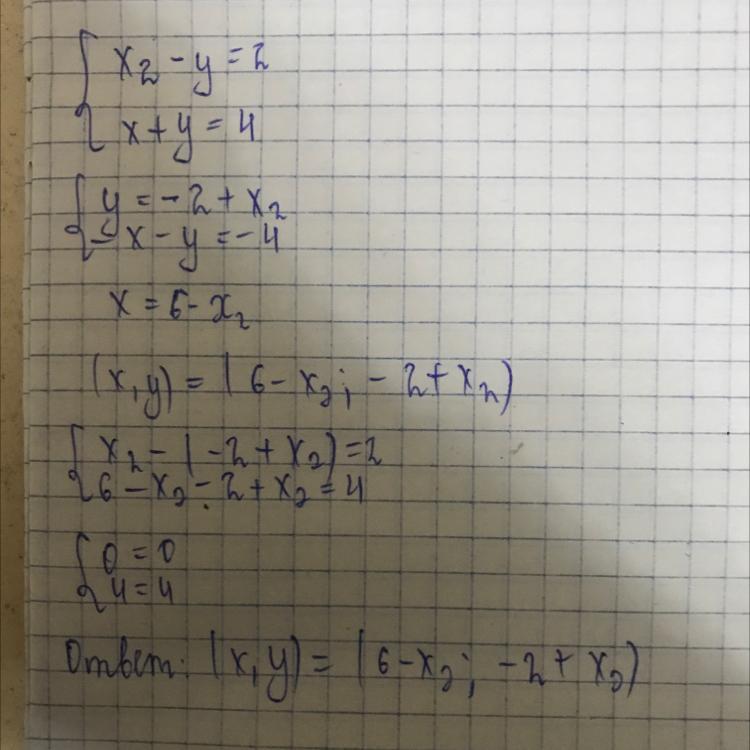 x₂ - y = 2
x + y = 4
y = -2 + x₂
-x - y = -4
x = 6 - x₂
(x, y) = (6 - x₂; -2 + x₂)
x₂ - (-2 + x₂) = 2
6 - x₂ - 2 + x₂ = 4
0 = 0
4 = 4
Ответ: (x, y) = (6 - x₂; -2 + x₂)